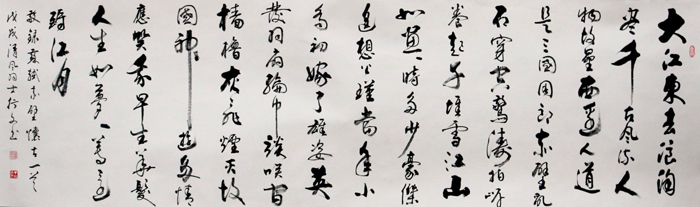 大江東去浪淘
盡千古風流人
物故壘西邊人道
是三國周郎赤壁亂
石穿空驚濤拍岸
捲起千堆雪江山
如畫一時多少豪傑
遙想公瑾當年小
喬初嫁了雄姿英
發羽扇綸巾談笑間
檣櫓灰飛煙滅故
國神遊多情
應笑我早生華髮
人生如夢一尊還
酹江月
敬錄蘇軾赤壁懷古一首
戊戌清風